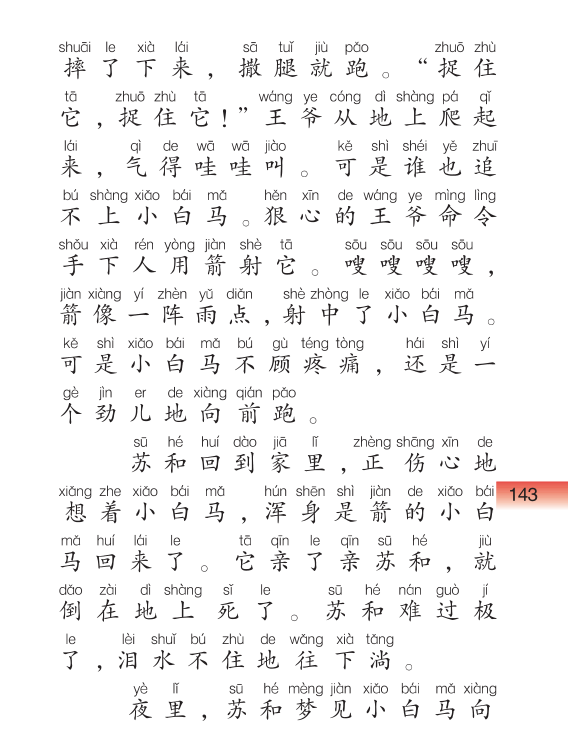 shuāi le xià lái sā tuǐ jiù pǎo zhuō zhù
摔了下来，撒腿就跑。“捉住
tā zhuō zhù tā wáng ye cóng dì shàng pá qǐ
它，捉住它！”王爷从地上爬起
lái qì de wā wā jiào kě shì shéi yě zhuī
来，气得哇哇叫。可是谁也追
bú shàng xiǎo bái mǎ hěn xīn de wáng ye mìng lìng
不上小白马。狠心的王爷命令
shǒu xià rén yòng jiàn shè tā sōu sōu sōu sōu
手下人用箭射它。嗖嗖嗖嗖，
jiàn xiàng yí zhèn yǔ diǎn shè zhòng le xiǎo bái mǎ
箭像一阵雨点，射中了小白马。
kě shì xiǎo bái mǎ bú gù téng tòng hái shì yí
可是小白马不顾疼痛，还是一
gè jìn er de xiàng qián pǎo
个劲儿地向前跑。
sū hé huí dào jiā lǐ zhèng shāng xīn de
苏和回到家里，正伤心地
xiǎng zhe xiǎo bái mǎ hún shēn shì jiàn de xiǎo bái
想着小白马，浑身是箭的小白
143
mǎ huí lái le tā qīn le qīn sū hé jiù
马回来了。它亲了亲苏和，就
dǎo zài dì shàng sǐ le sū hé nán guò jí
倒在地上死了。苏和难过极
le lèi shuǐ bú zhù de wǎng xià tǎng
了，泪水不住地往下淌。
yè lǐ sū hé mèng jiàn xiǎo bái mǎ xiàng
夜里，苏和梦见小白马向